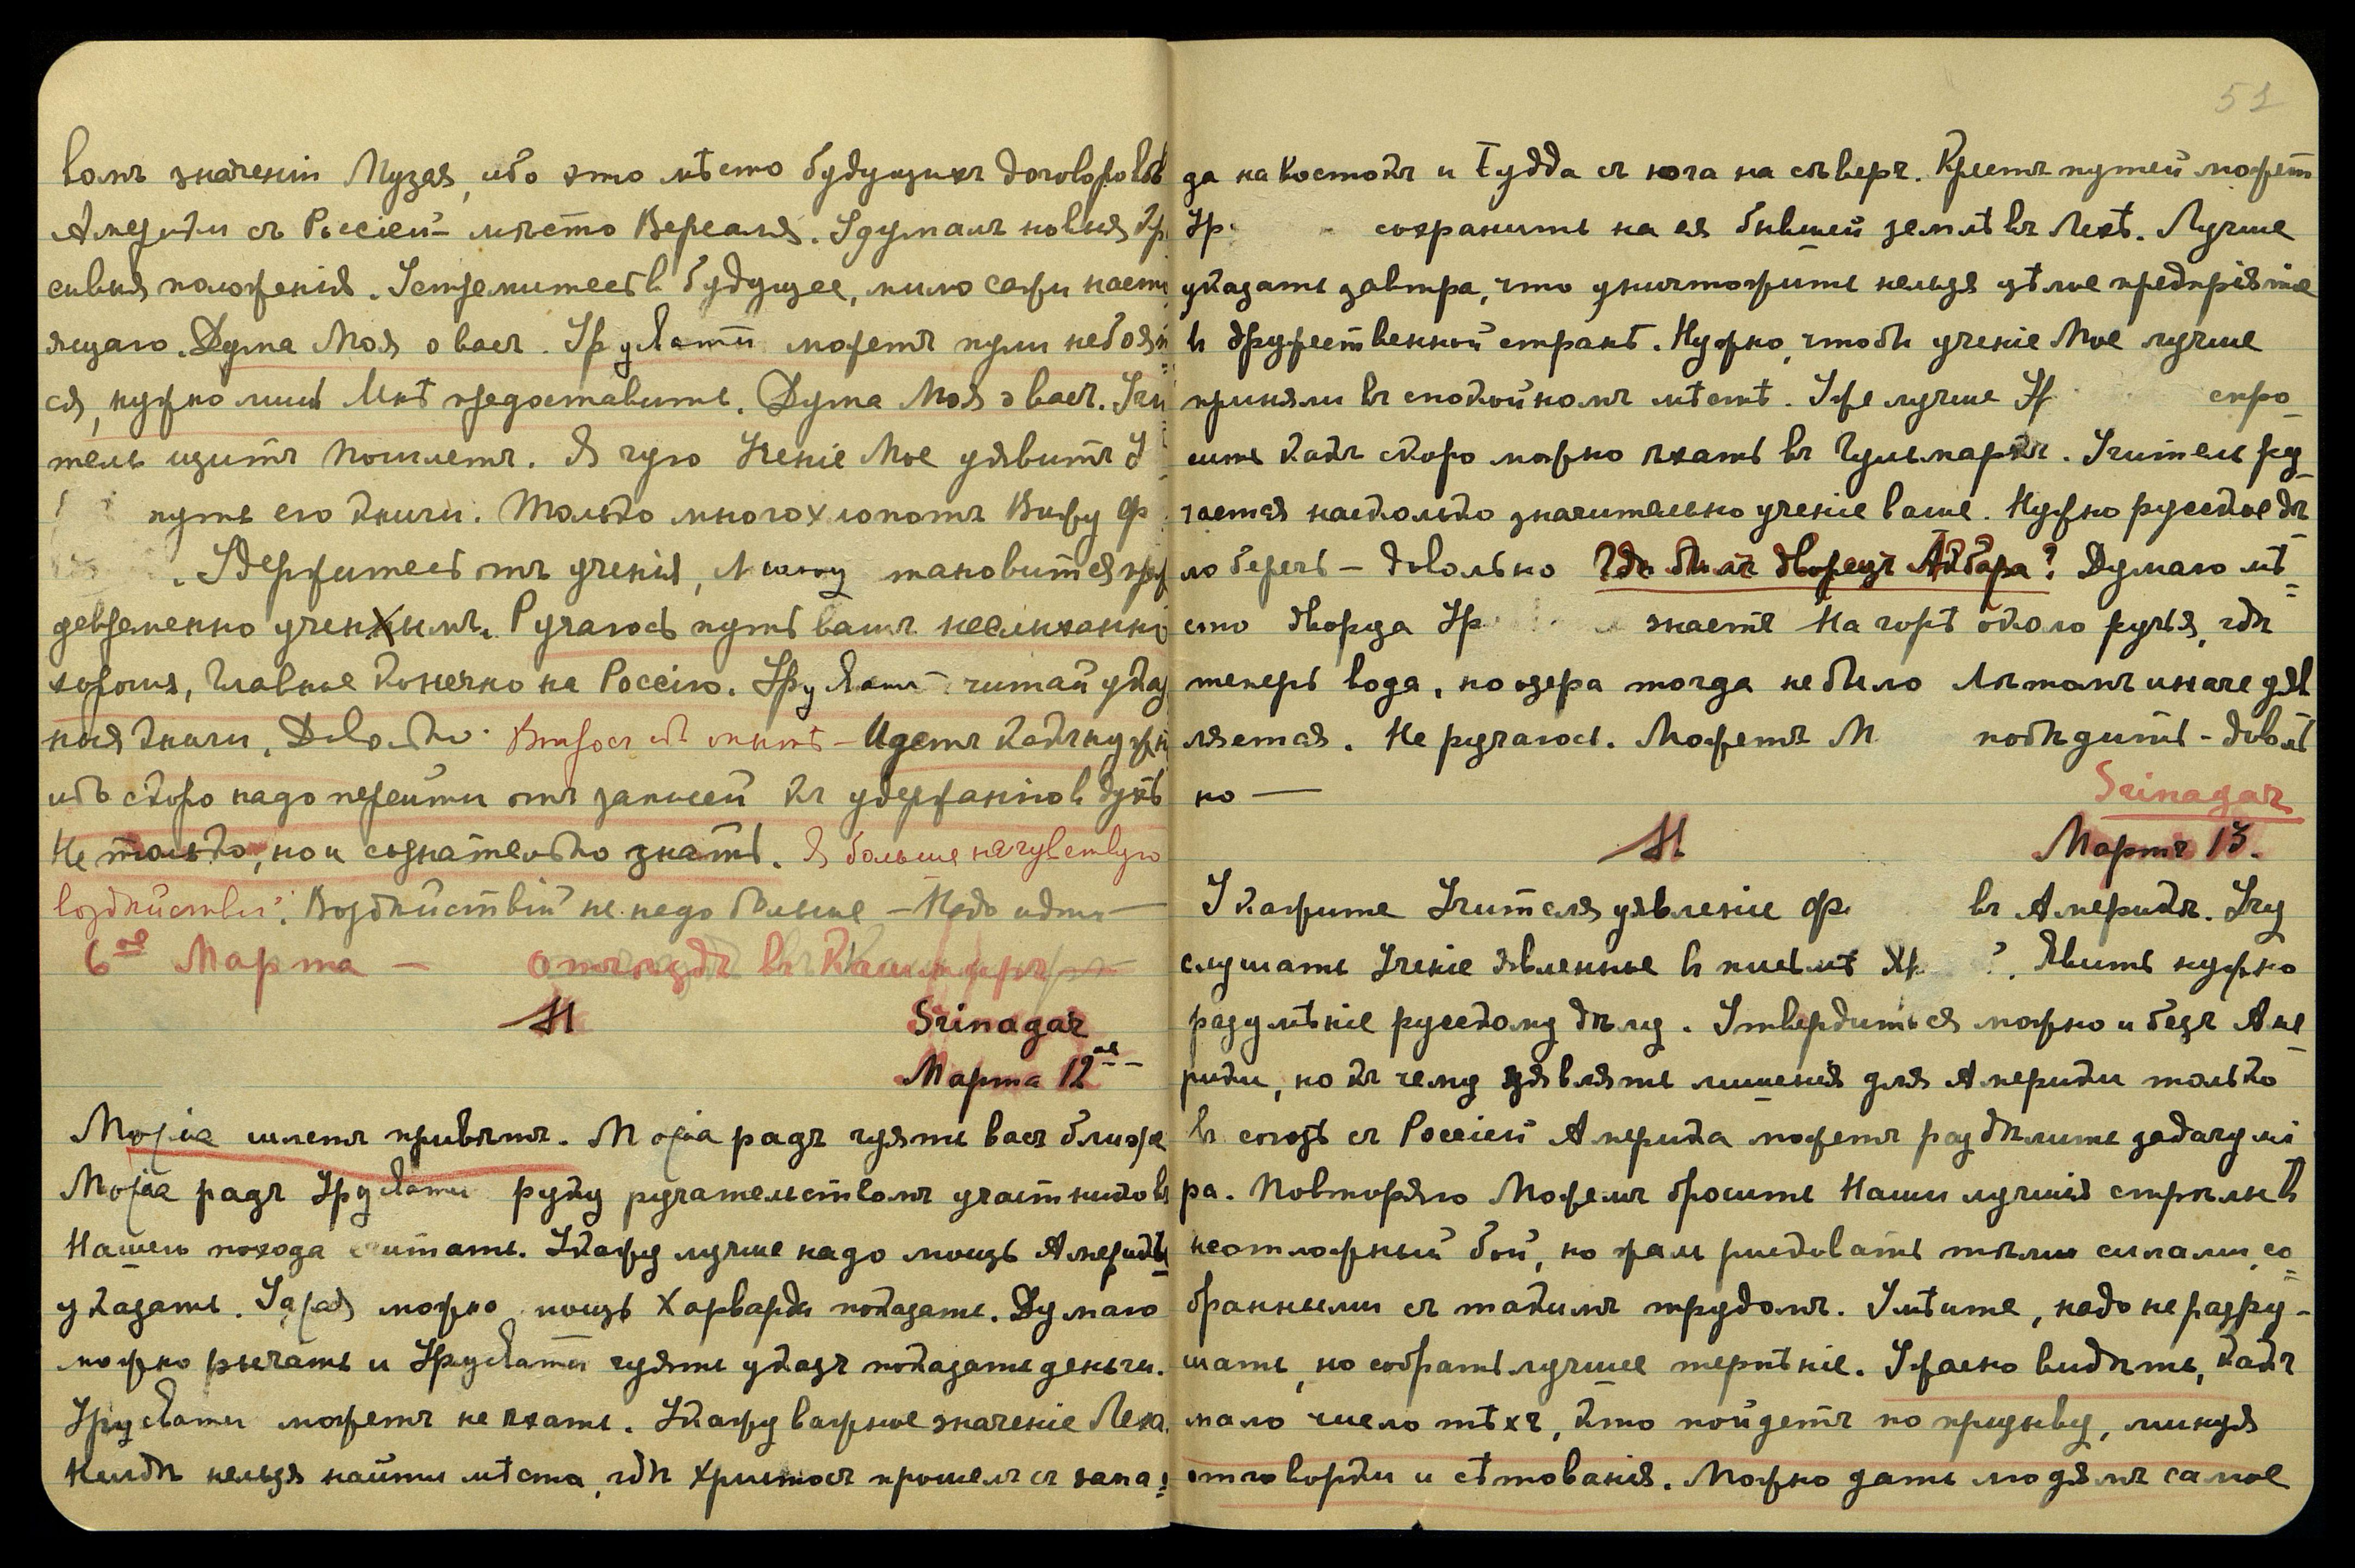 вомъ значеніи Музея, ибо это мѣсто будущихъ договоровъ
Америки съ Россіей – мѣсто Версаля. Удумалъ новыя кра
сивыя положенія. Устремитесь въ будущее, мимо сажи насто
ящаго. Дума Моя о васъ. Урусвати можетъ пули не боять
ся, нужно лишь Мнѣ предоставить. Дума Моя о васъ. Учи
тель щитъ пошлетъ. Я чую Ученіе Мое удивитъ
путь его книги. Только много хлопотъ Вижу Ф
. Удержитесь отъ ученія, становится преж
девременно ученымъ. Ручаюсь путь вашъ неслыханно
хорошъ, главное конечно на Россію. Урусвати читай указ
ныя книги. Довольно. Вопросъ объ опытѣ – Идетъ какъ нужн
ибо скоро надо перейти отъ записей къ удержанію въ духѣ
Не только, но и сознательно знать. Я больше не чувствую
воздѣйствій? Воздѣйствій не надо больше – Надо идти –
6ое Марта – отъѣздъ въ Кашмиръ
М Srinagar
Марта 12ое
Морія шлетъ привѣтъ. Морія радъ чуять васъ ближе
Морія радъ Урусвати руку ручательствомъ участниковъ
Нашего похода считать. Укажу лучше надо мощь Америкѣ
указать. Удрая можно мощь Харварда показать. Думаю
можно рычать и Урусвати чуять указъ показать деньги.
Урусвати можетъ не ѣхать. Укажу важное значеніе Леха.
Нигдѣ нельзя найти мѣста, гдѣ Христосъ прошелъ съ запа=
51
да на востокъ и Будда съ юга на сѣверъ. Крестъ путей можетъ
Ур сохранить на ея бывшей землѣ въ Лехѣ. Лучше
указать завтра, что уничтожить нельзя цѣлое предпріятіе
въ дружественной странѣ. Нужно, чтобы ученіе Мое лучше
приняли въ спокойномъ мѣстѣ. Уже лучше Ур спро
сить какъ скоро можно ѣхать въ Гульмаркъ. Учитель ру
чается насколько значительно ученіе ваше. Нужно русское дѣ
ло беречь – довольно Гдѣ былъ дворецъ Акбара? Думаю мѣ
сто дворца Ур знаетъ На горѣ около ручья, гдѣ
теперь вода, но озера тогда не было Лѣтомъ иначе удѣ
ляется. Не ручаюсь. Можетъ М побѣдить – доволь
но —
Srinagar
М Мартъ 13.
Укажите Учителя удивленіе Ф. въ Америкѣ. Учу
слушать Ученіе явленное въ письмѣ Хр ?. Явить нужно
разумѣніе русскому дѣлу. Утвердиться можно и безъ Аме
рики, но къ чему уявлять лишенія для Америки только
въ союзѣ съ Россіей Америка можетъ раздѣлить задачу мі
ра. Повторяю Можемъ бросить Наши лучшія стрѣлы въ
неотложный бой, но жаль рисковать тѣми силами, со=
бранными съ такимъ трудомъ. Умѣйте, надо не разру–
шать, но собрать лучшее терпѣніе. Ужасно видѣть, какъ
мало число тѣхъ, кто пойдетъ по призыву, минуя
отговорки и сѣтованія. Можно дать людямъ самое